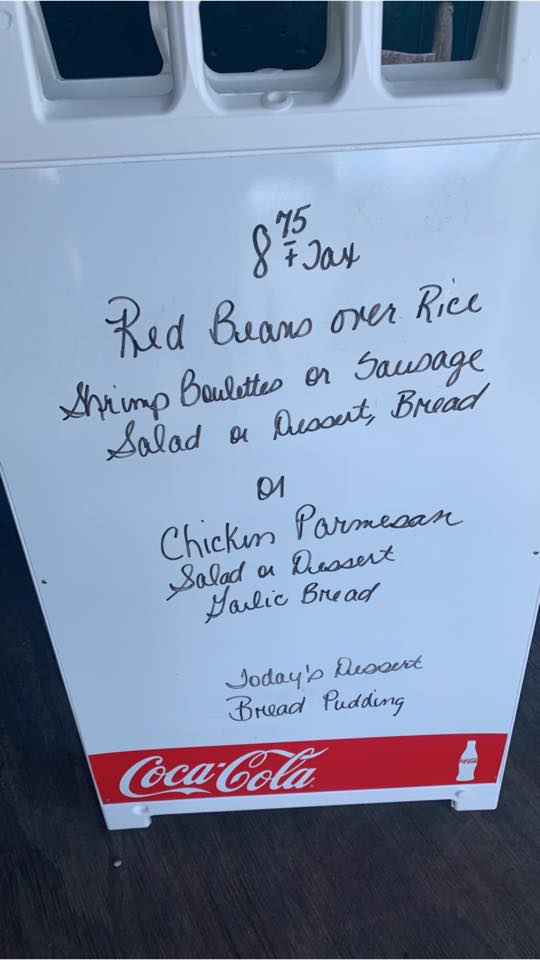 8 75
+ Tax
Red Beans over Rice
Shrimp Boulettes or Sausage
Salad or Dessert, Bread
or
Chicken Parmesan
Salad or Dessert
Garlic Bread
Today's Dessert
Bread Pudding
Coca-Cola